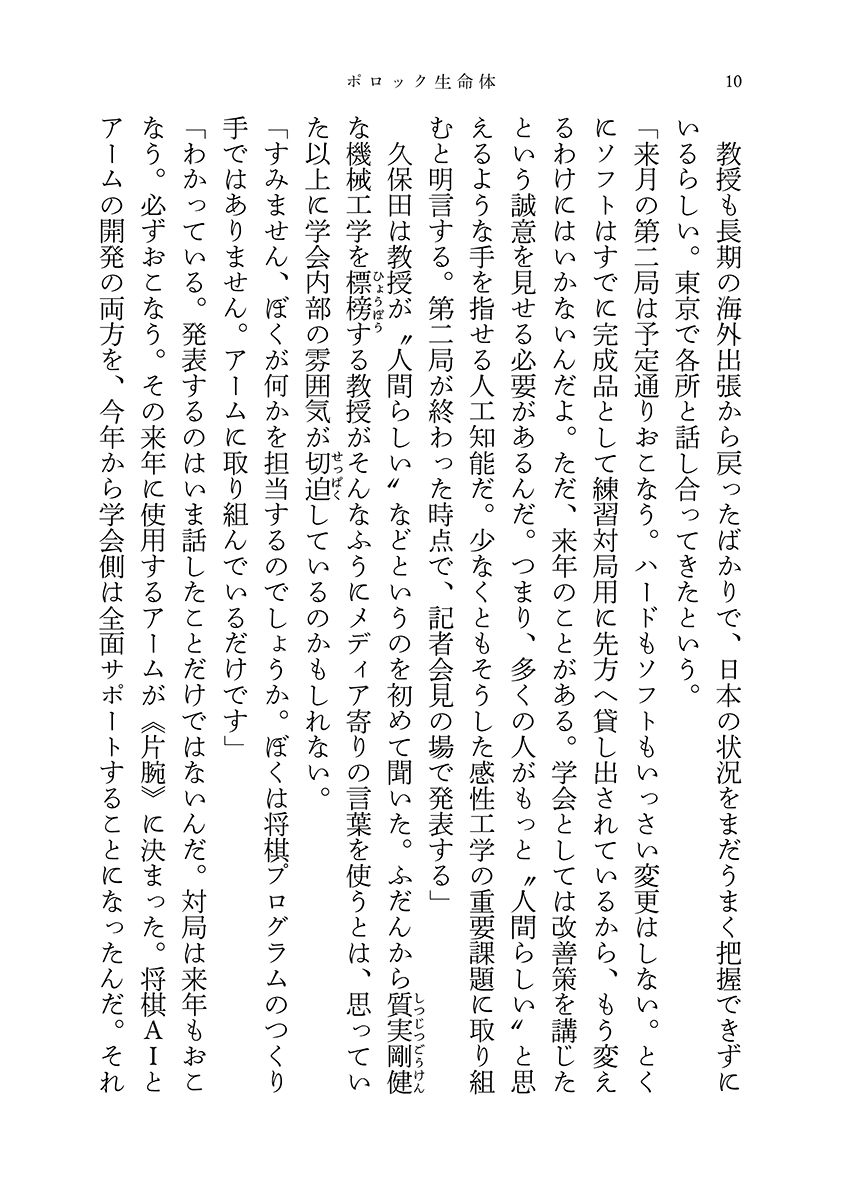 ポロック生命体
10
教授も長期の海外出張から戻ったばかりで、日本の状況をまだうまく把握できずに
いるらしい。東京で各所と話し合ってきたという。
「来月の第二局は予定通りおこなう。ハードもソフトもいっさい変更はしない。とく
にソフトはすでに完成品として練習対局用に先方へ貸し出されているから、もう変え
るわけにはいかないんだよ。ただ、来年のことがある。学会としては改善策を講じた
という誠意を見せる必要があるんだ。つまり、多くの人がもっと〝人間らしい〟と思
えるような手を指せる人工知能だ。少なくともそうした感性工学の重要課題に取り組
むと明言する。第二局が終わった時点で、記者会見の場で発表する」
久保田は教授が〝人間らしい〟などというのを初めて聞いた。ふだんから質実剛健
しつじつごうけん
な機械工学を標榜する教授がそんなふうにメディア寄りの言葉を使うとは、思ってい
ひょうぼう
た以上に学会内部の雰囲気が切迫しているのかもしれない。
せっぱく
「すみません、ぼくが何かを担当するのでしょうか。ぼくは将棋プログラムのつくり
手ではありません。アームに取り組んでいるだけです」
「わかっている。発表するのはいま話したことだけではないんだ。対局は来年もおこ
なう。必ずおこなう。その来年に使用するアームが《片腕》に決まった。将棋ＡＩと
アームの開発の両方を、今年から学会側は全面サポートすることになったんだ。それ